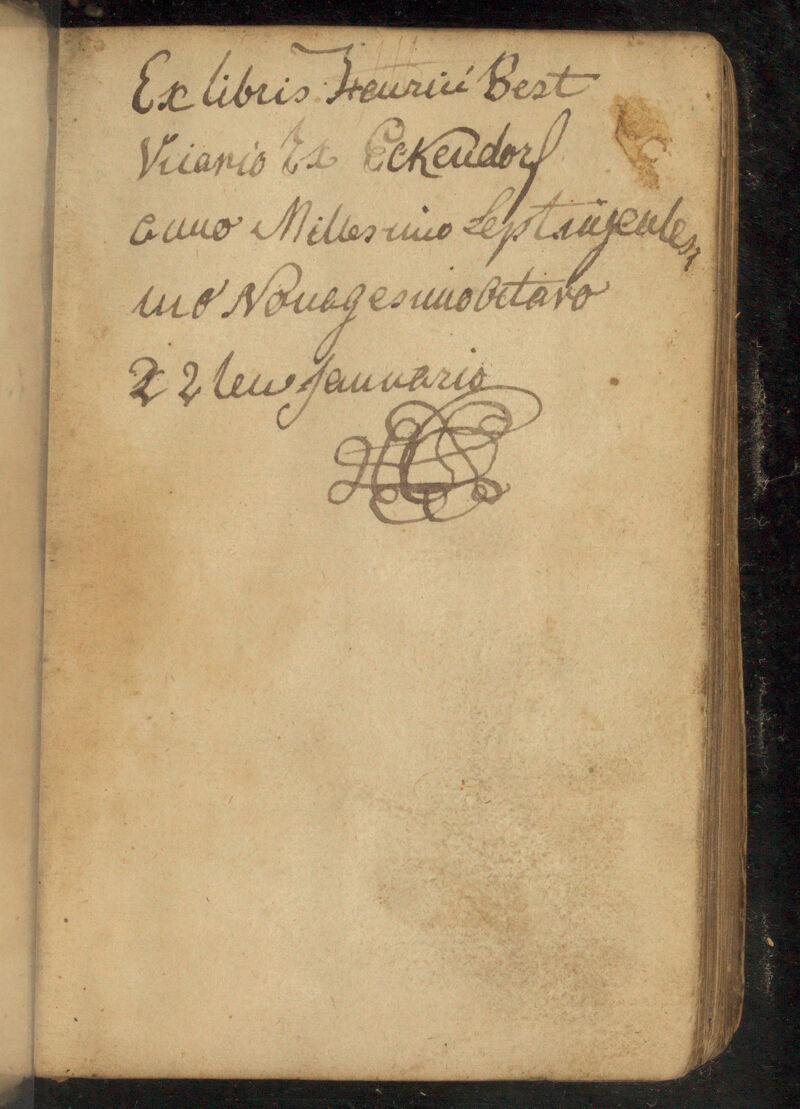 Ex libris Henrici Best
Vicario Ex Eckendorf
anno Millesimo Septingentesi
mo Nonagesimo Octavo
22 ten Januario